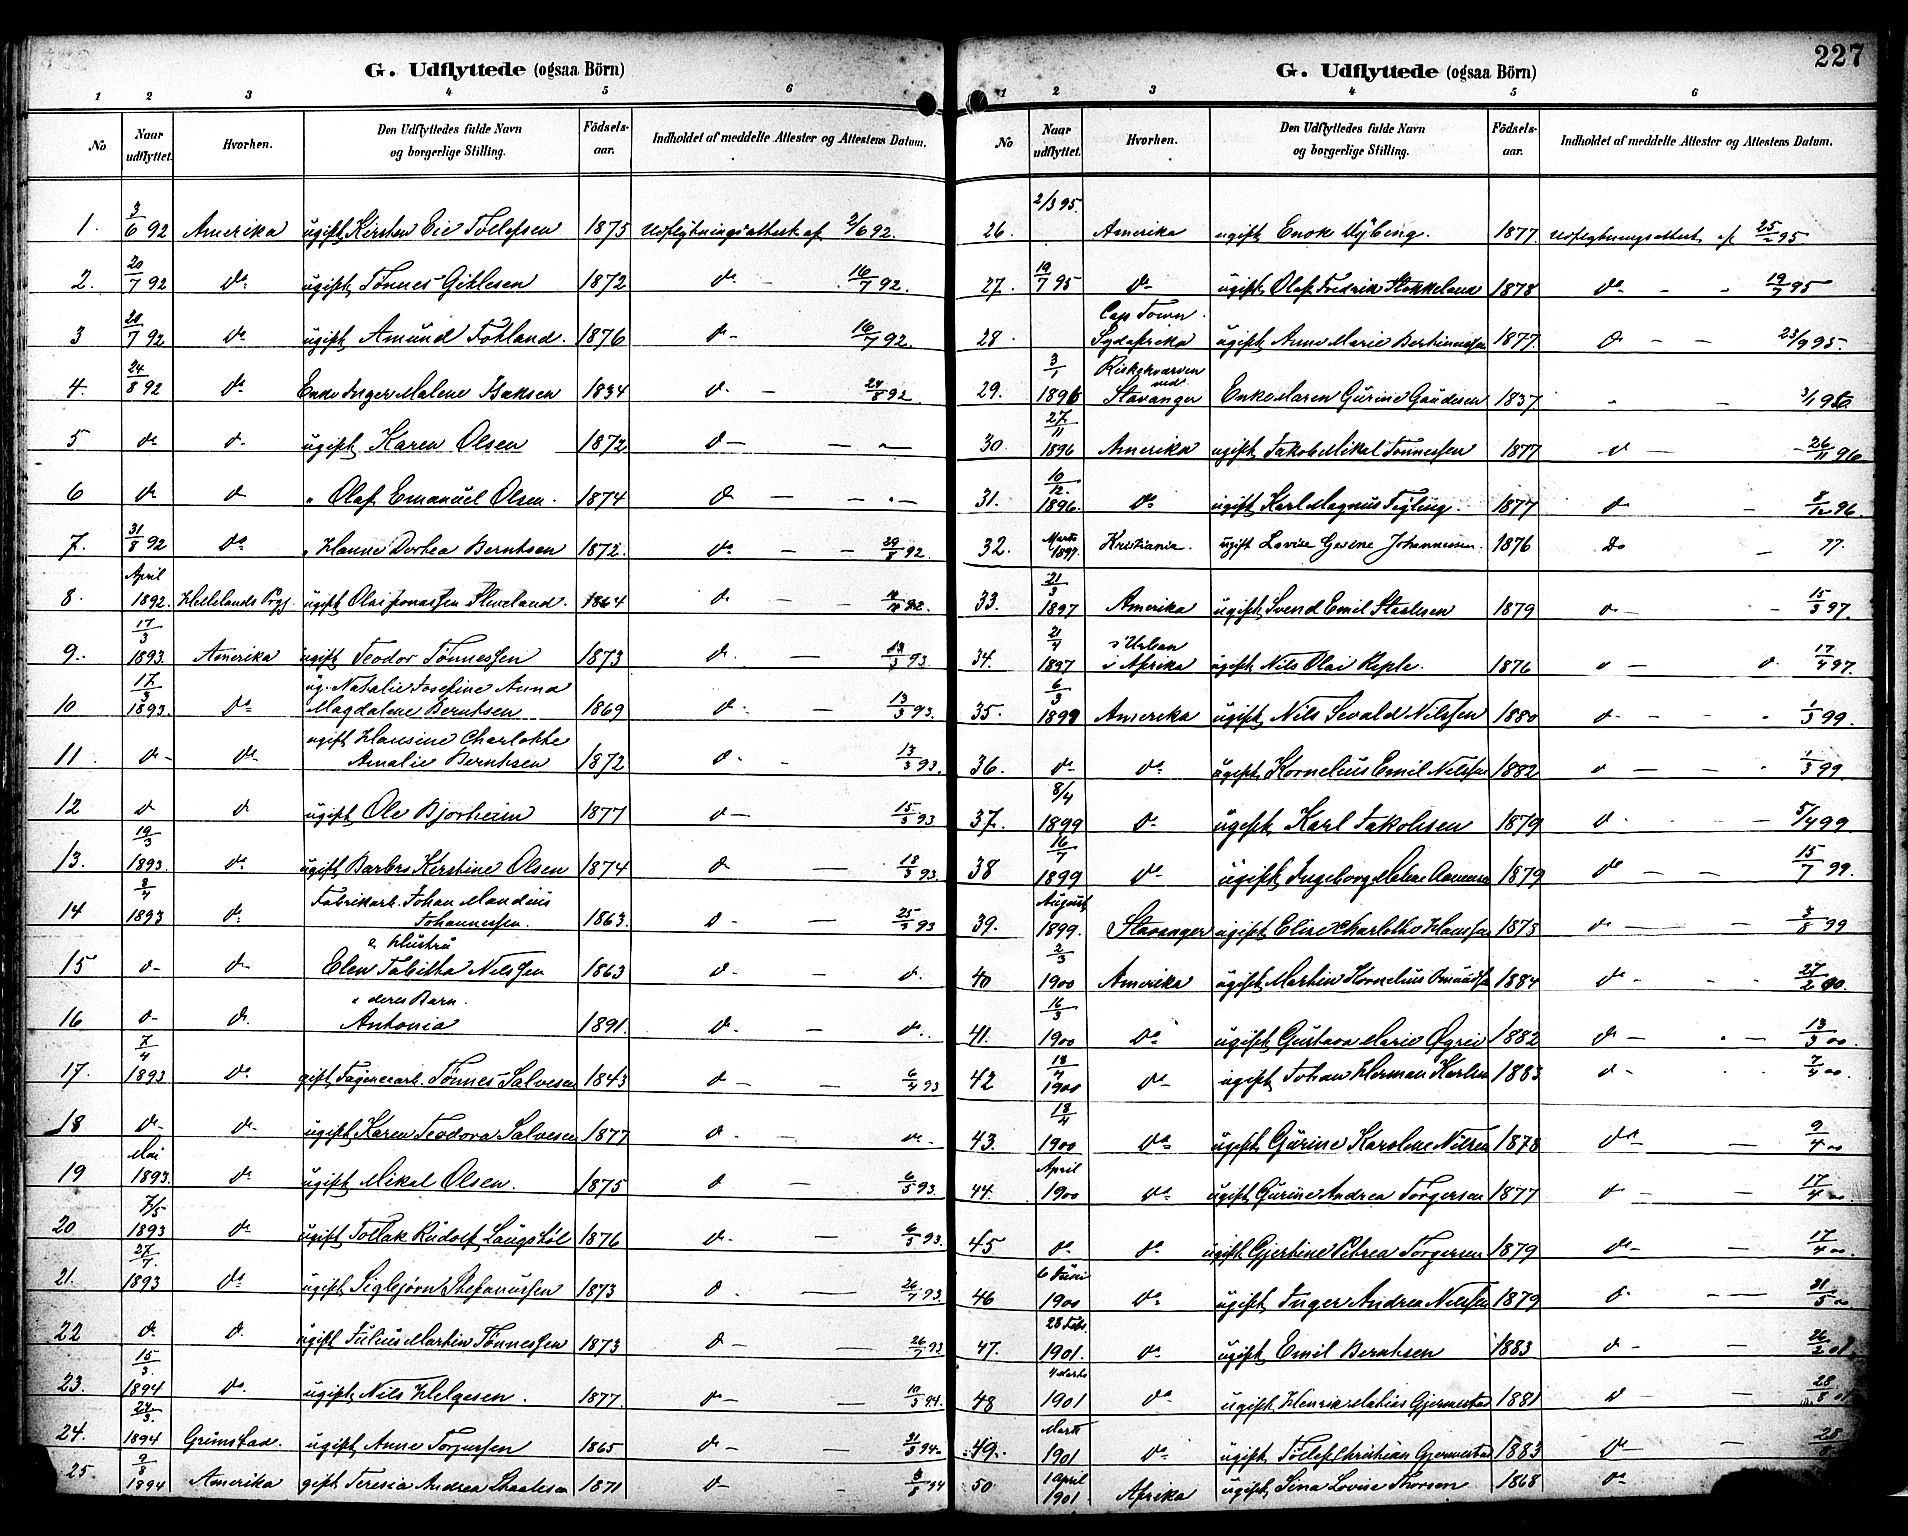 227
G. Udflyttede (ogsaa Börn)
1 2 3 4 5 6
No Naar udflyttet. Hvorhen. Den Udflyttedes fulde Navn og borgerlige Stilling. Födsels-aar. Indholdet af meddelte Attester og Attestens Datum.
1. 3/6 92 Amerika ugift Kirsten Eie Tollefsen 1875 Udflytningsattest af 2/6 92.
2. 20/7 92 do ugift Tønnes Giklesen 1872 do - 16/7 92.
3 20/7 92 do ugift Amund Fotland. 1876 do - 16/7 92.
4. 24/8 92 do Enke Inger Malene Isaksen 1834 do - 24/8 92.
5 do do ugift Karen Olsen 1872 do - —
6 do do " Olaf Emanuel Olsen. 1874 do — — " —
7. 31/8 92 do " Hanne Dorbea Berntsen 1872. do — — 29/8 92.
8. April 1892. Hellelands Prgj. ugift Olai Jonassen 1864 do — 92.
9. 17/3 1893. Amerika ugift Teodor Tønnessen 1873 do — 13/3 93.
10 17/3 1893. do ug. Natalie Josefine Anna
Magdalene Berntsen 1869 do — 13/3 93.
11 do do ugift Hansine Charlotte
Amalie Berntsen 1872 do - 13/3 93.
12 do do ugift Ole Bjorheim 1877 do — 15/3 93
13. 19/3 1893. do ugift Barbro Kirstine Olsen 1874 do — 18/3 93.
14 8/4 1893 do Fabrikarb. Johan Mandius
Johannessen. 1863. do — 25/3 93
15 do do & Hustru
Elen Tabitha Nilssen 1863 do — do
16 do do & deres Barn.
Antonia 1891. do — do
17. 7/4 1893 do gift Fagencearb. Tønnes Salvesen 1843 do — 6/4 93
18 do do ugift Karen Teodora Salvesen 1877 do — do
19 Mai 1893. do ugift Mikal Olsen. 1875 do — 6/5 93.
20 7/5 1893 do ugift Tollak Rudolf Laugsløl 1876 do — 6/5 93.
21. 27/7. 1893 do ugift Sigbjørn Stefanussen 1873 do — 26/7 93.
22 do do ugift Julius Martin Tønnessen 1873 do — 26/7 93
23. 15/3. 1894 do ugift Nils Helgesen. 1877. do — 10/3 94.
24. 24/3. 1894 Grimstad. ugift Anne Torjussen 1865 do — 21/3 94
25. 9/8 1894 Amerika gift Teresia Andrea Staalesen 1871 do - 8/8 94
G. Udflyttede (ogsaa Börn)
1 2 3 4 5 6
No Naar udflyttet. Hvorhen. Den Udflyttedes fulde Navn og borgerlige Stilling. Födsels-aar. Indholdet af meddelte Attester og Attestens Datum.
26. 2/3 95. Amerika ugift Enok Nybing. 1877. Udflytningsattest af 25/2 95
27. 19/7 95 do ugift Olaf Fredrik Stokkeland 1878 do - - 19/7 95
28 Cap Town.
Sydafrika ugift Anne Marie Bertinussen 1877 do — — 23/9 95.
29. 3/1 1896 Kiskekværven
ved
Stavanger Enke Maren Gurine Gaudesen 1837 " — 3/1 96
30. 27/11 1896 Amerika ugift Jakob Mikal Tønnessen 1877 do — 26/11 96
31. 10/12. 1896. do ugift Karl Magnus Figling. 1877 do — 8/12 96.
32. Marts 1897. Kristiania. ugift Lovise Gerine Johannessen 1876 Do — 97.
33. 21/3 1897 Amerika ugift Svend Emil Staalesen 1879 do — 15/3 97.
34. 21/4 1897 i Urban
i Afrika ugift Nils Olai Reple. 1876 do — do 17/4 97.
35. 6/3 1899 Amerika ugift Nils Sevald Nilssen 1880 do — " 1/3 99.
36. do do ugift Kornelius Emil Nilssen 1882 do — " 1/3 99.
37. 8/4 1899 do ugift Karl Jakobsen 1879 do — 5/4 99
38 16/7 1899 do ugift Ingeborg Malene Aamunsen 1879 do — — 15/7 99.
39. August 1899. Stavanger ugift Elise Charlotte Hanssen 1873 do — 3/8 99
40 2/3 1900 Amerika ugift Martin Kornelius Omundsen 1884 do - - 27/2 00.
41. 16/3 1900 do ugift Gustava Marie Øgrei 1882 do — " — 13/3 00.
42 18/4 1900 do ugift Johan Herman Karlsen 1883 do - 7/4 00.
43. 18/4 1900 do ugift Gurine Karoline Nilsen 1878 do — 9/4 00
44. April 1900 do ugift Gurine Andrea Torgersen 1877 do — 17/4 00
45 do do ugift Gjertine Petrea Torgersen 1879 do — 17/4 00.
46 6 Juni 1900 do ugift Inger Andrea Nilssen 1879 do — 21/5 00
47. 28 Feb. 1901. do ugift Emil Berntsen 1883 do — 26/2 01.
48 4 Marts 1901 do ugift Henrik Matias Gjermestad 1881 do — 28/8 01.
49. Marts 1901 do ugift Tollef Christian Gjermestad 1883 do — 28
50 1 April 1901 Afrika ugift Sina Lovise Thorsen 1868 do